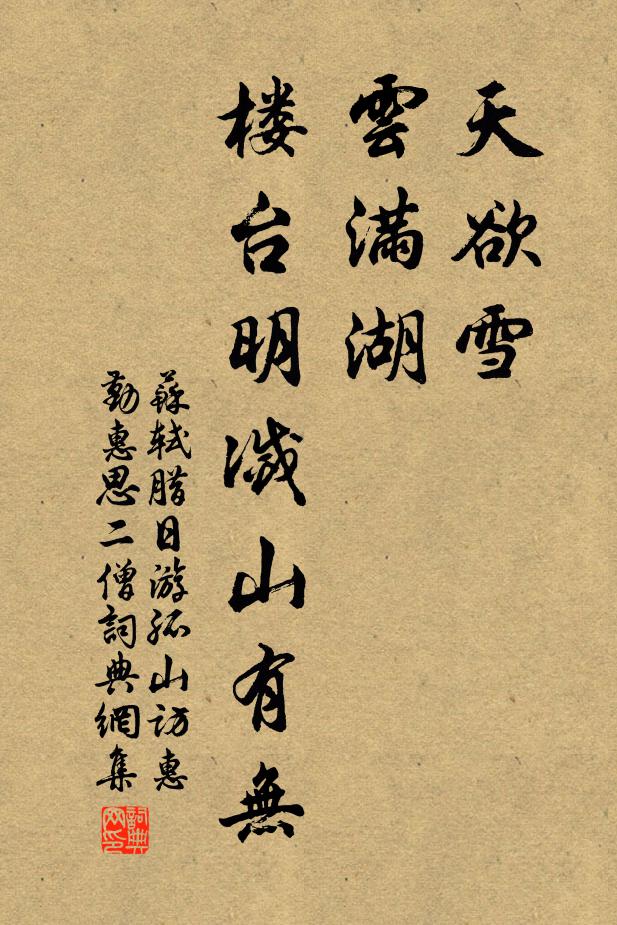 天欲雪
雲滿湖
楼台明滅山有無
蘇軾腊日游孤山访惠
勤惠思二僧詞典網集
詞典网印